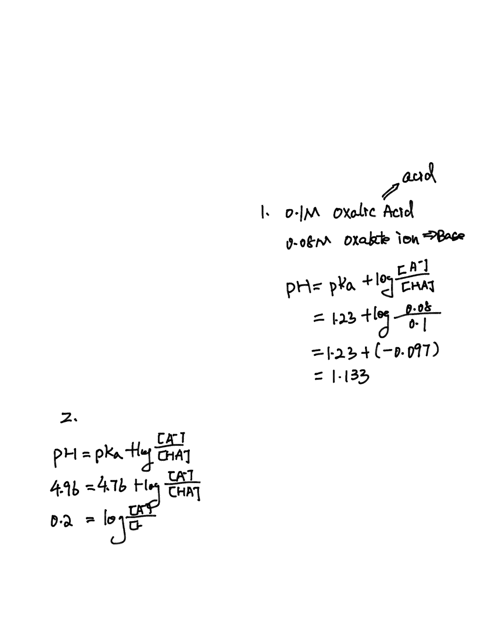 acid
1. 0.1M Oxalic Acid
0.08M Oxalate ion ⇒ Base
pH = pka + log [A⁻]/[HA]
= 1.23 + log 0.08/0.1
= 1.23 + (-0.097)
= 1.133
2.
pH = pka + log [A⁻]/[HA]
4.96 = 4.76 + log [A⁻]/[HA]
0.2 = log [A⁻]/[